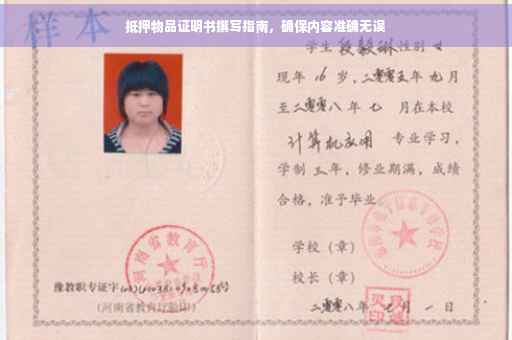 抵押物品证明书撰写指南，确保内容准确无误
样本
学生 段毅琳 性别 女
现年 16 岁，二零零五年 九 月
至二零零八年 七 月在本校
计算机应用 专业学习，
学制 三 年，修业期满，成绩
合格，准予毕业。
学校（章）
校长（章）
二零零八年 七 月 一 日
河南省教育厅
豫教职专证字
（河南省教育厅验印）